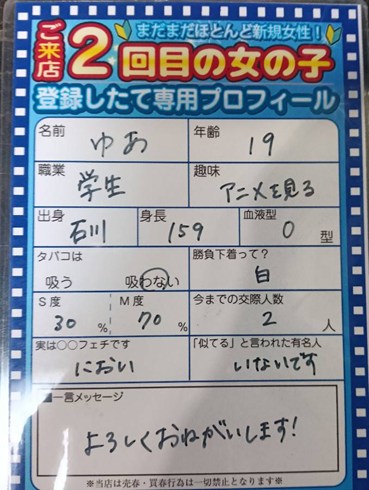 まだまだほとんど新規女性!
ご来店2回目の女の子
登録したて専用プロフィール
名前 ゆあ 年齢 19
職業 学生 趣味 アニメを見る
出身 石川 身長 159 血液型 O 型
タバコは 吸う 吸わない 勝負下着って? 白
S度 30 % M度 70 % 今までの交際人数 2 人
実は○○フェチです におい 「似てる」と言われた有名人 いないです
■一言メッセージ
よろしくおねがいします!
※当店は売春・買春行為は一切禁止となります※